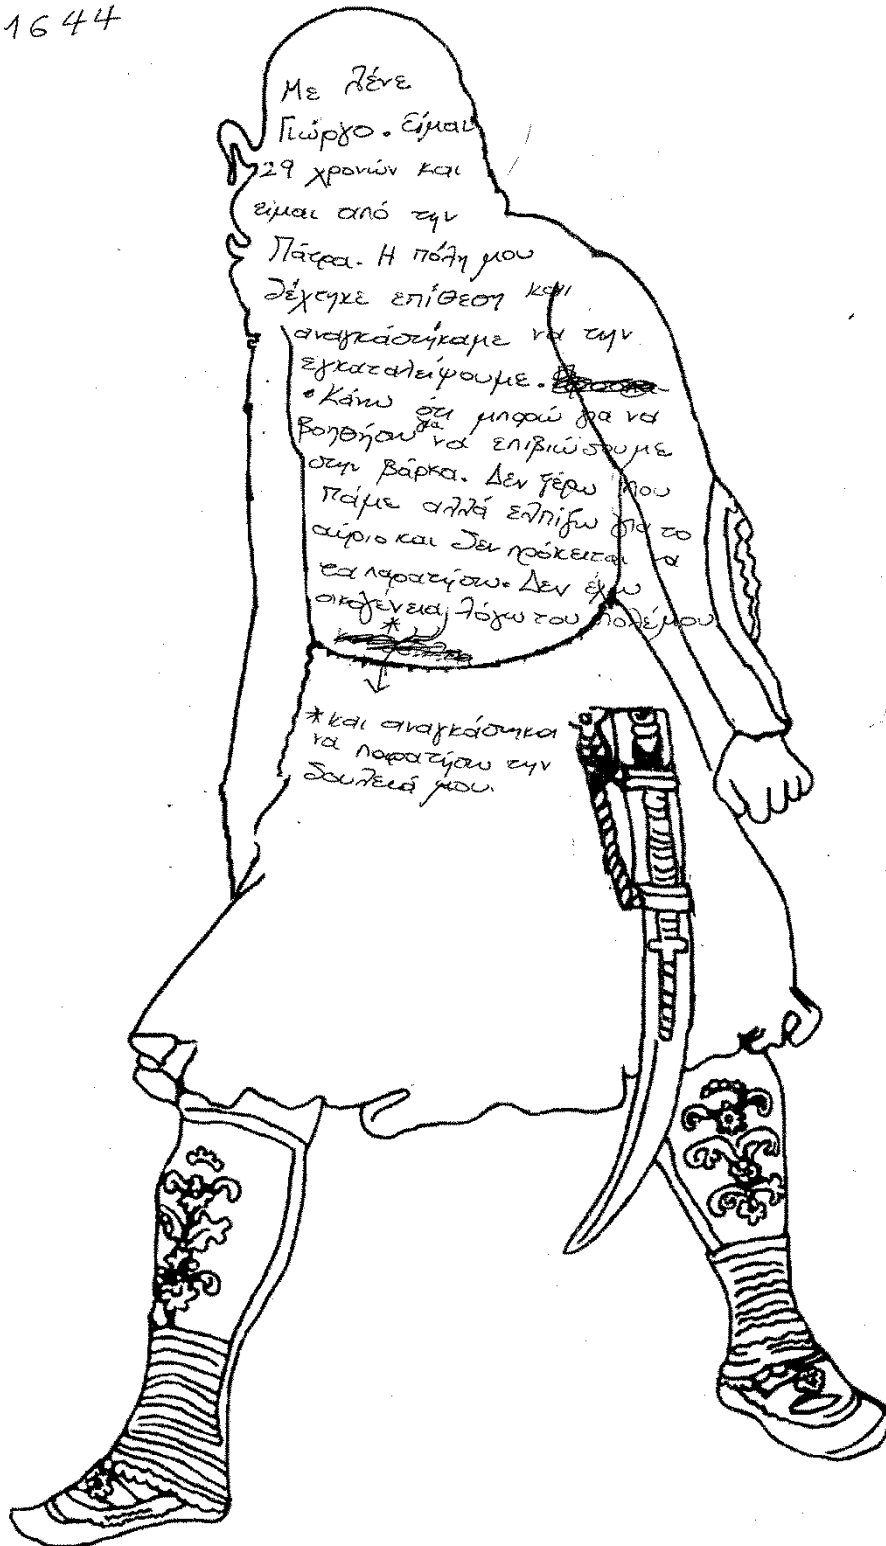 1644
Με λένε
Γιώργο. είμαι
29 χρονών και
είμαι από την
Πάτρα. Η πόλη μου
δέχτηκε επίθεση και
αναγκάστηκαμε να την
εγκαταλείψουμε.
• Κάνω ότι μπορώ για να
βοηθήσω για να επιβιώσουμε
στην βάρκα. Δεν ξέρω που
πάμε αλλά ελπίζω για το
αύριο και δεν πρόκειται να
τα παρατήσω. Δεν έχω
οικογένεια λόγω του πολέμου
*
*και αναγκάστηκα
να παρατήσω την
δουλειά μου.